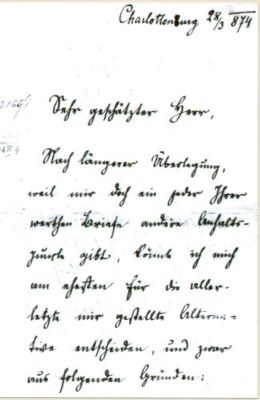 Charlottenburg 28/3 874
Sehr geschätzter Herr,
Nach längerer Überlegung,
weil mir doch ein jeder Ihrer
werthen Briefe andere Anhalts-
puncte gibt, könnte ich mich
am ehesten für die aller-
letzte mir gestellte Alterna-
tive entscheiden, und zwar
aus folgenden Gründen: